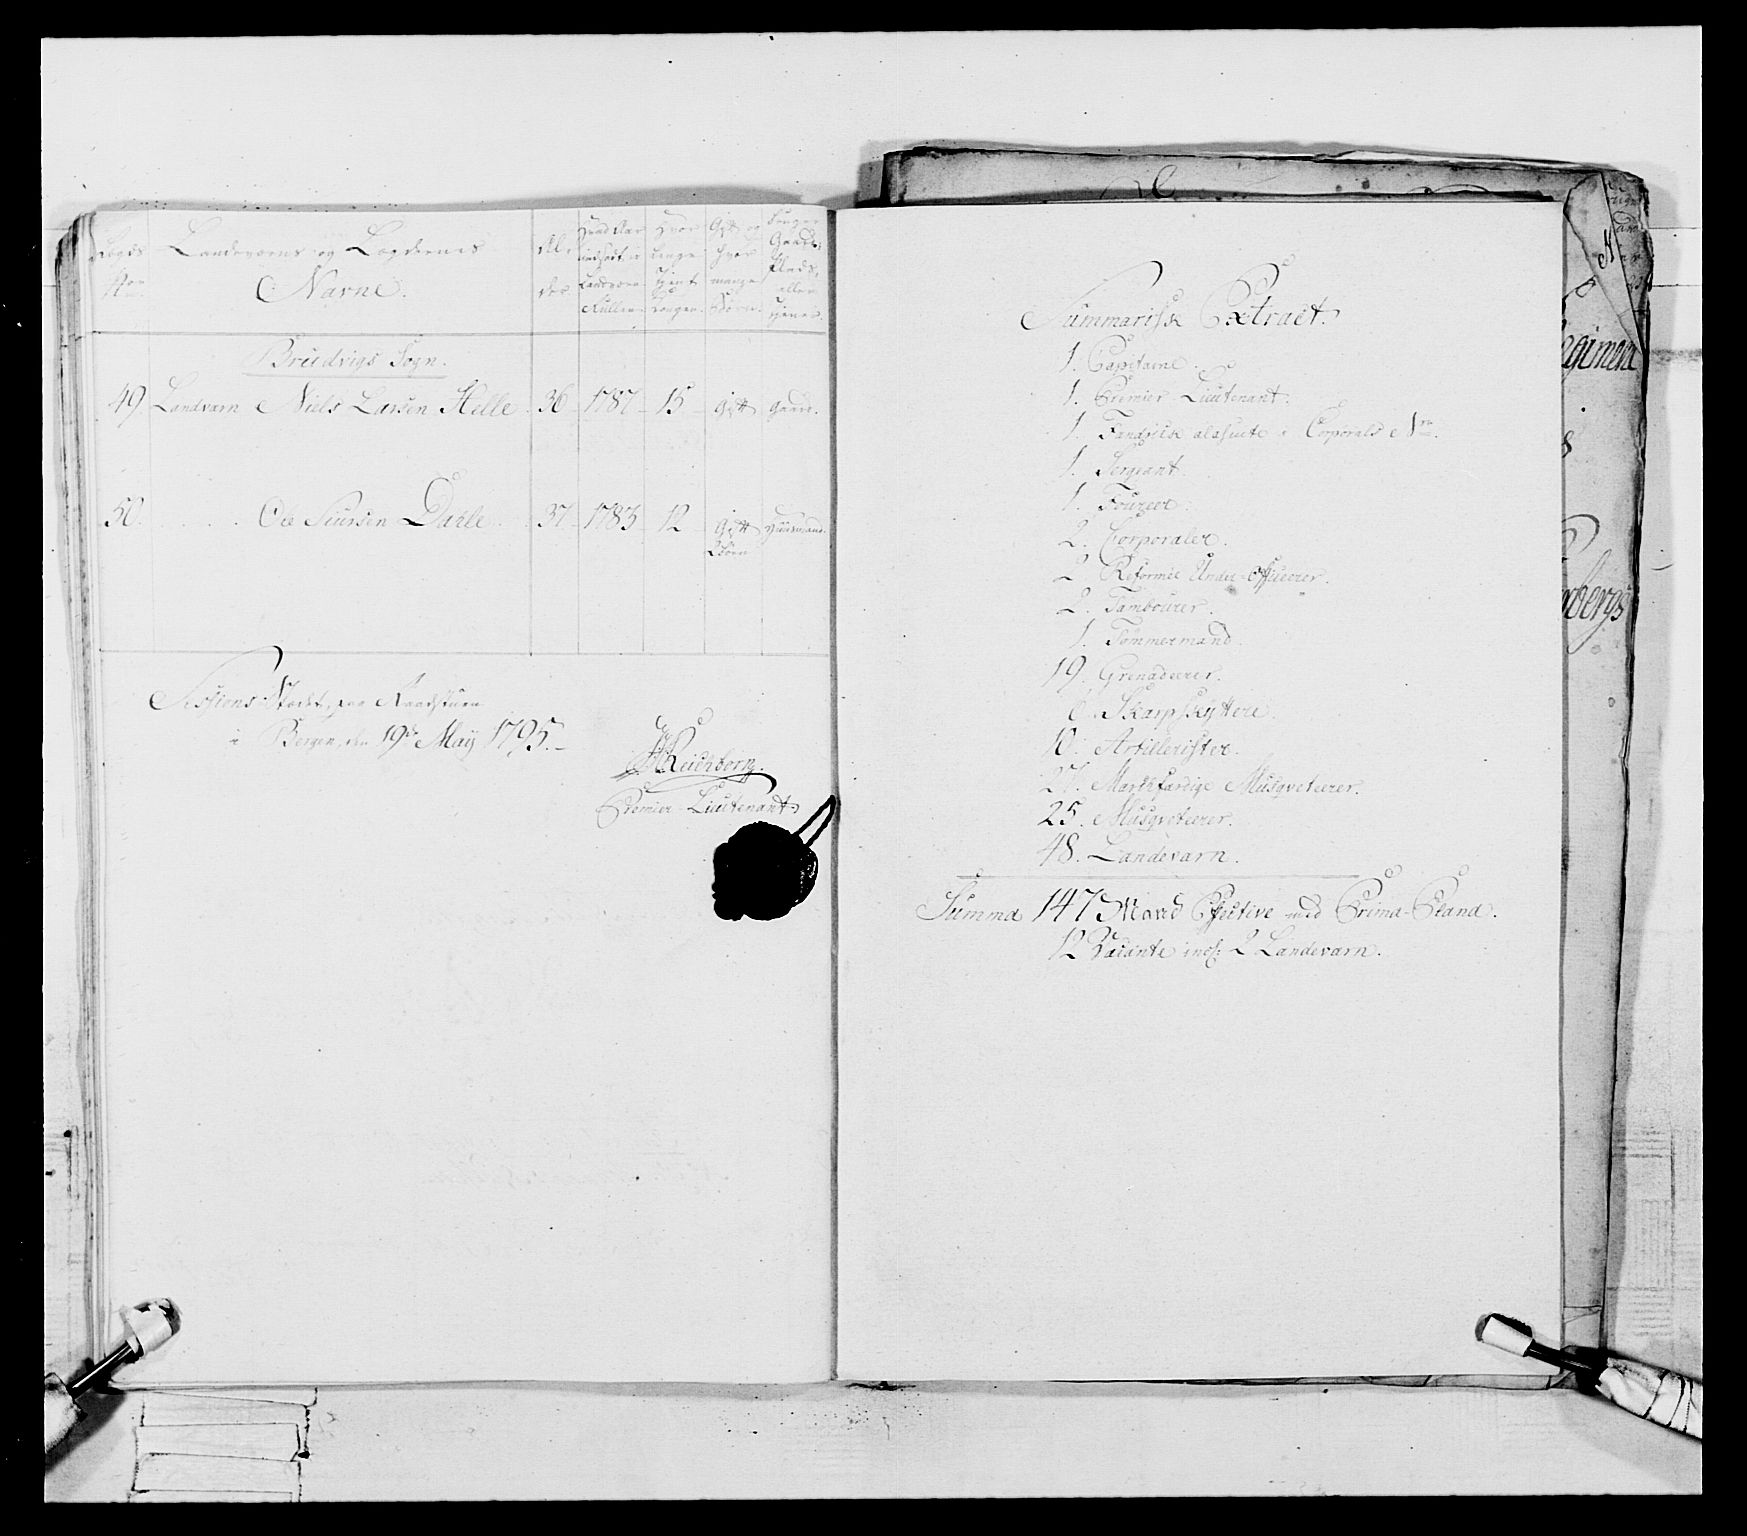 Landeværns og Lægdernes
Navne.
Al-
der
Hvad Aar
Landværn
Rullen
Hvor
længe
tjent
Gift og
hvor
mange
Børn.
Bruger
Gaard,
Plads,
eller
tjener.
Brudvigs Sogn.
49. Landvärn Niels Larsen Helle 36 1787 15 gift gaard.
50. Ole Siursen Dahle 37 1783 12 gift Huusmand.
2 Börn
Sessions Stædet, paa Raadstuen
i Bergen, den 19de May 1795.
Reichborn.
Premier-Lieutenant
Summarisk Extract.
1. Capitaine.
1. Premier Lieutenant.
1. Fandrick alasuite Corporals
1. Sergeant.
1. Fourer.
2. Corporaler.
2. Reformée Under-Officerer.
2. Tambourer.
1. Tömmermand.
19. Grenaderer.
6. Skarpskyttere.
10. Artillerister.
27. Marschfærdige Musqveteerer.
25. Musqveteerer.
48. Landevärn.
Summa 147 Mand Effective med Prima-Plana.
12 Vacante incl: 2 Landevärn.